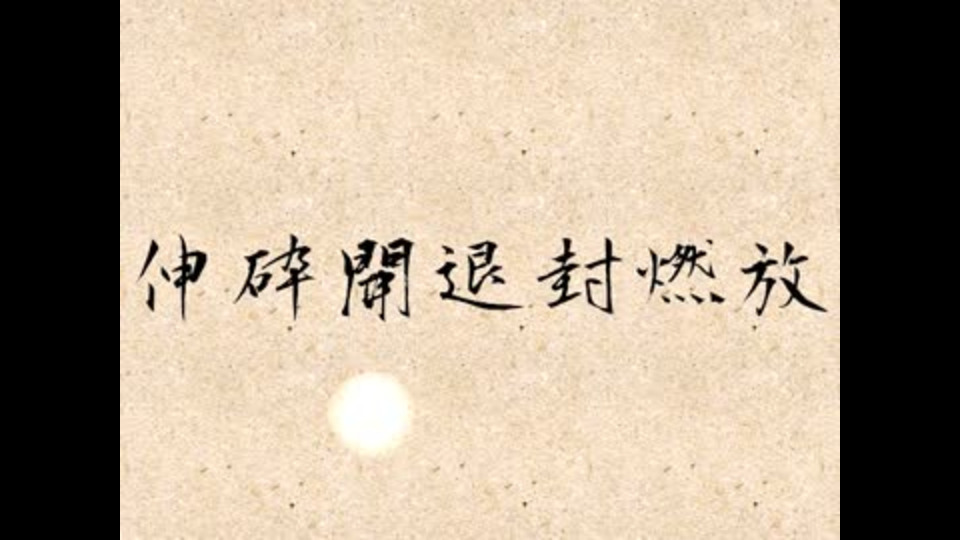 伸砕開退封燃放